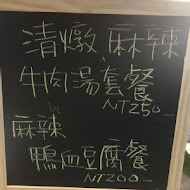 清燉、麻辣
牛肉湯套餐
NT250-
麻辣
鴨血豆腐餐
NT200-